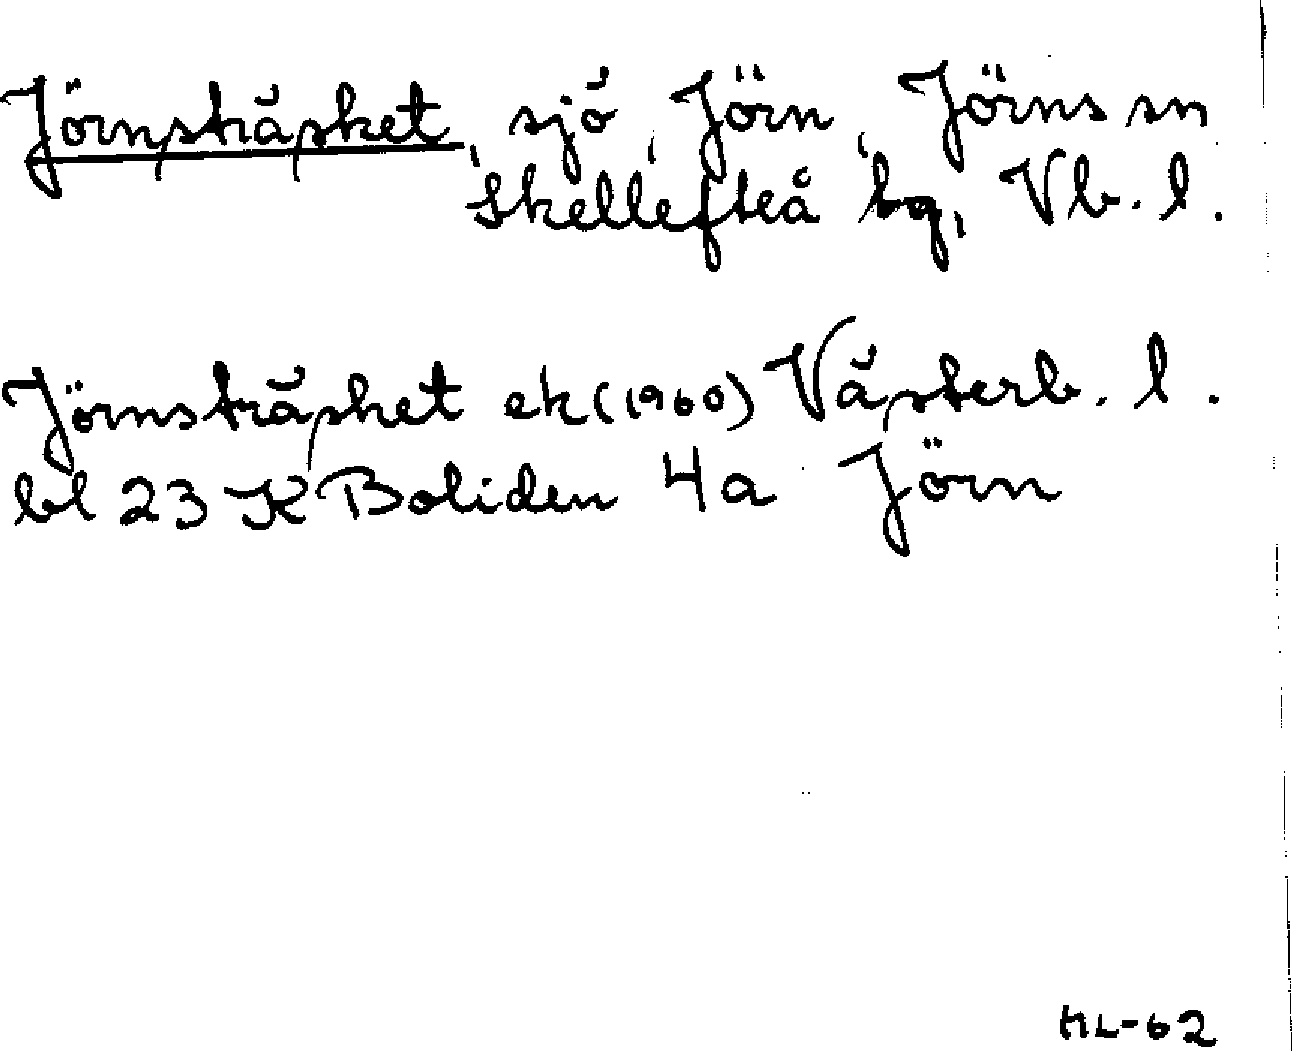 Jörnsträsket, sjö, Jörn, Jörns sn
Skellefteå kg, Vb. l.
Jörnsträsket ek (1960) Västerb. l.
bl 23 K Boliden 4a Jörn
ML-62